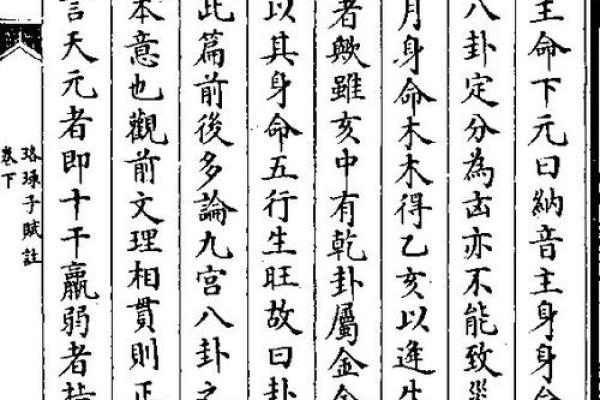 主命下元曰納音主身身命
八卦定分為㐫亦不能致災
月身命木木得乙亥以逢生
者歟雖亥中有乾卦屬金金
以其身命五行生旺故曰卦
此篇前後多論九宮八卦之
本意也觀前文理相貫則正
言天元者即十干羸弱者
珞琭子賦註
卷下